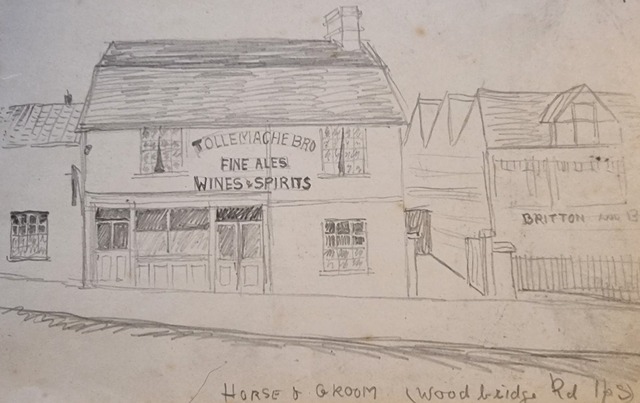 TOLLEMACHE BRO
FINE ALES
WINES & SPIRITS
BRITTON AND B
HORSE & GROOM (Woodbridge Rd IPS)